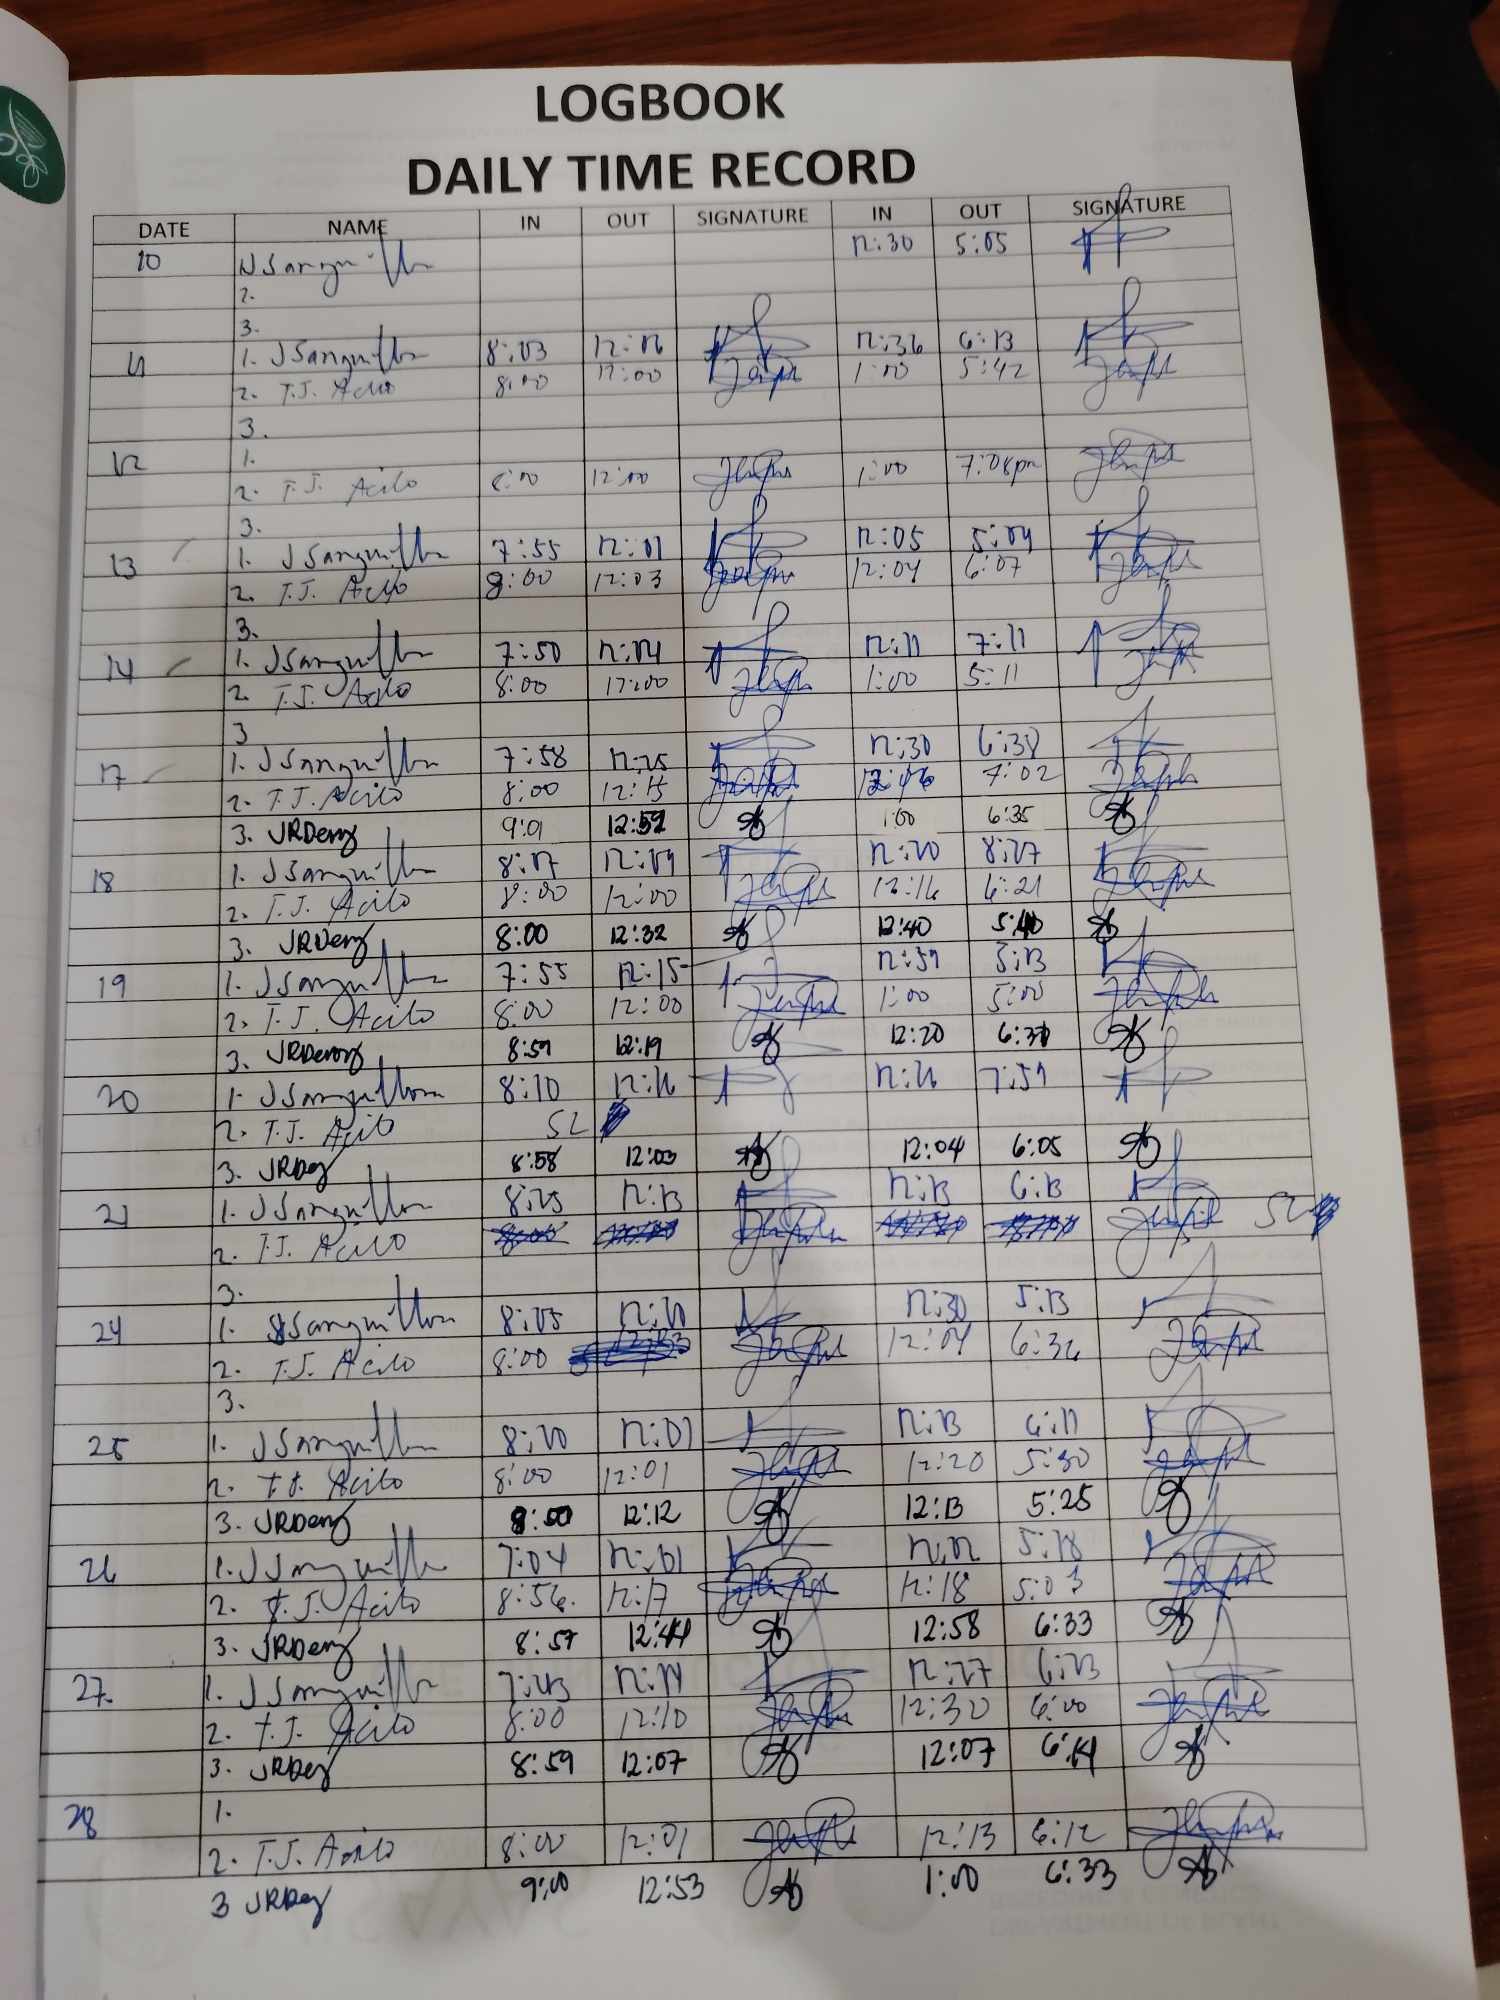 LOGBOOK
DAILY TIME RECORD
DATE NAME IN OUT SIGNATURE IN OUT SIGNATURE
10 12:30 5:05
2.
3.
11 1. JSanguilla 8:03 12:36 6:13
2. T.J. Acito 8:00 12:00 1:00 5:42
3.
12 1.
2. T.J. Acito 8:00 12:00 1:00 7:08pm
3.
13 1. JSanguilla 7:55 12:01 12:05 5:04
2. T.J. Acito 8:00 12:03 12:04 6:07
3.
14 1. JSanguilla 7:50 12:04 12:11 7:11
2. T.J. Acito 8:00 12:00 1:00 5:11
3
17 1. JSanguilla 7:58 12:25 12:30 6:38
2. T.J. Acito 8:00 12:15 12:46 7:02
3. JRDeny 9:01 12:59 1:00 6:35
18 1. JSanguilla 8:17 12:09 12:20 8:27
2. T.J. Acito 8:00 12:00 12:16 6:21
3. JRDeny 8:00 12:32 12:40 5:40
19 1. JSanguilla 7:55 12:15 12:59 5:13
2. T.J. Acito 8:00 12:00 1:00 5:00
3. JRDeny 8:59 12:19 12:20
20 1. JSanguilla 8:10 12:16 12:16 7:59
2. T.J. Acito SL
3. JRDey 8:58 12:03 12:04 6:05
21 1. JSanguilla 8:25 12:13 12:13 6:13
2. T.J. Acito SL
3.
24 1. JSanguilla 8:05 12:20 12:30 5:13
2. T.J. Acito 8:00 12:04 6:36
3.
25 1. JSanguilla 8:20 12:01 12:13 6:11
2. T.J. Acito 8:00 12:01 12:20 5:30
3. JRDeny 8:50 12:12 12:13 5:25
26 1. JSanguilla 7:04 12:01 12:02 5:18
2. T.J. Acito 8:56. 12:17 12:18 5:03
3. JRDeny 8:57 12:44 12:58 6:33
27. 1. JSanguilla 7:43 12:19 12:27 6:23
2. T.J. Acito 8:00 12:10 12:30 6:00
3. JRDey 8:59 12:07 12:07 6:14
28 1.
2. T.J. Acito 8:00 12:01 12:13 6:12
3 JRDey 9:00 12:53 1:00 6:33